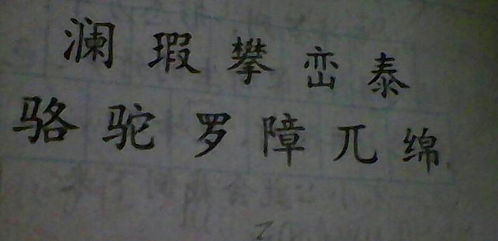 澜 瑕 攀 峦 泰
骆 驼 罗 障 兀 绵